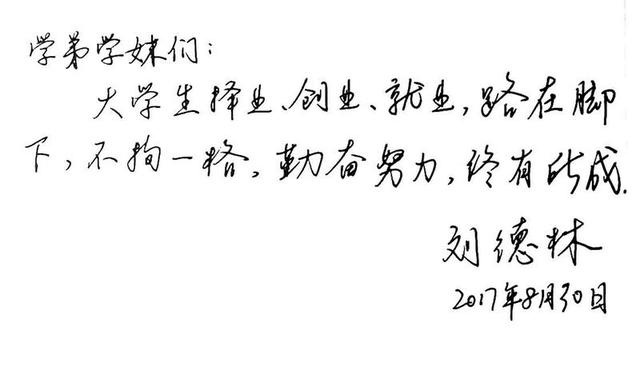 学弟学妹们：
大学生择业、创业、就业，路在脚
下，不拘一格，勤奋努力，终有所成.
刘德林
2017年8月30日